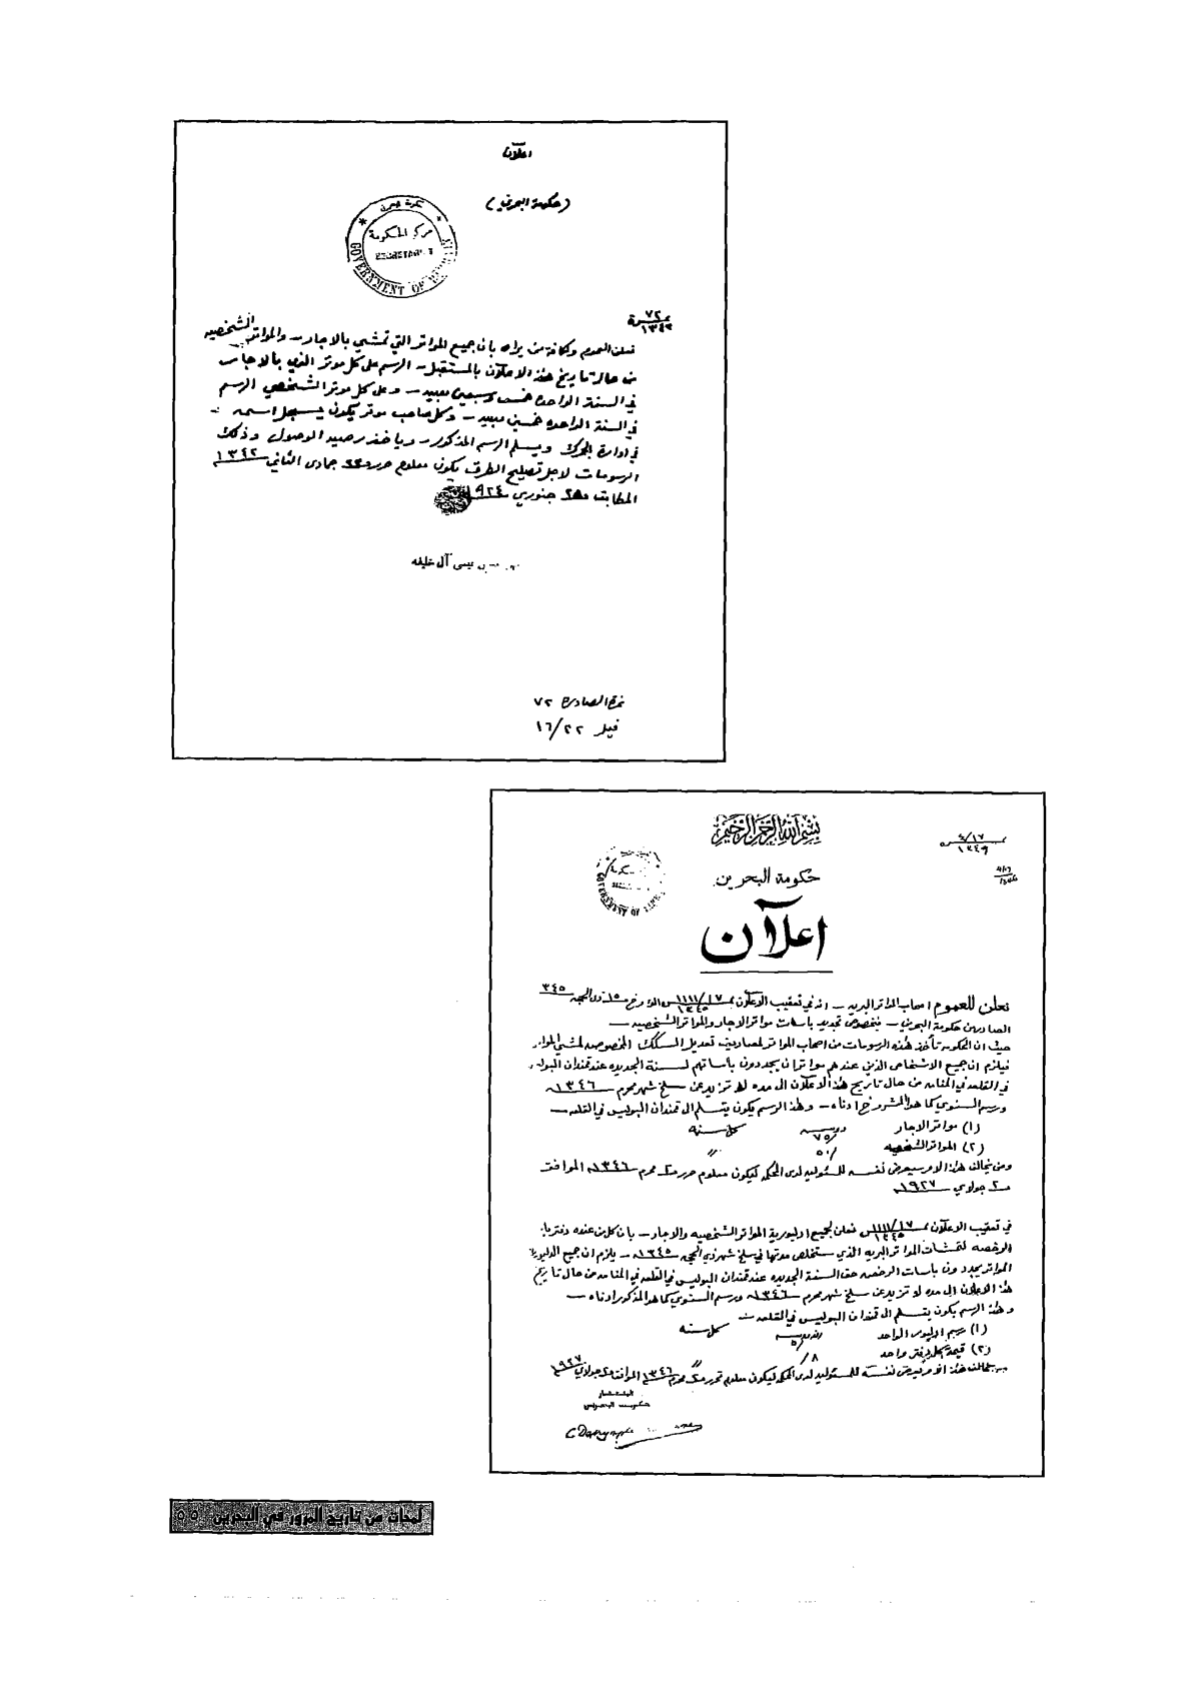 اعلان
(حكومة البحرين)
مركز الحكومة
GOVERNMENT OF
نمرة ٧٢ / ١٣٤٢
نعلن للعموم وكافة من يراه بان جميع المواتر التي تمشي بالاجار والمواتر الشخصيه
من حال تاريخ هذا الاعلان بالمستقبل الرسم على كل موتر الذي بالاجار
في السنة الواحدة خمس وسبعين ربيه وعلى كل موتر الشخصي الرسم
في السنة الواحده خمسين ربيه وكل صاحب موتر يكون يسجل اسمه
في ادارة الجمرك ويسلم الرسم المذكور وياخذ رصيد الوصول وذلك
الرسومات لاجل تصليح الطرق ليكون معلوم حرر جمادى الثاني ١٣٤٢
المطابق جنوري ١٩٢٤
عيسى آل خليفه
نمرة الصادرة ٧٢
فيل ١٦/٢٢
بسم الله الرحمن الرحيم
حكومة البحرين
GOVERNMENT OF
اعلان
نعلن للعموم اصحاب المواتر البريه انه في تعقيب الاعلان نمرة ١١١١/١٧ ١٣٤٥ المؤرخ ١٥ ذي الحجه ١٣٤٥
الصادر من حكومة البحرين بخصوص تجديد باسات مواتر الاجار والمواتر الشخصيه
حيث ان الحكومه تأخذ هذه الرسومات من اصحاب المواتر لمصاريف تعديل السكك المخصوصه لمشي المواتر
فيلزم ان جميع الاشخاص الذين عندهم مواتر ان يجددون باساتهم لسنة الجديده عند قمندان البوليس
في القلعه في المنامه من حال تاريخ هذا الاعلان الى مده لا تزيد عن سلخ شهر محرم ١٣٤٦
ورسم السنوي كما هو المشروح ادناه وهذا الرسم يكون يتسلم الى قمندان البوليس في القلعه
(١) مواتر الاجار روبيه ٧٥/ كل سنه
(٢) المواتر الشخصيه ٥٠/ "
ومن يخالف هذا الامر سيعرض نفسه للمسئوليه لدى المحكمه ليكون معلوم حرر ٢ محرم ١٣٤٦ الموافق
٢ جولاي ١٩٢٧
في تعقيب الاعلان نمرة ١١١١/١٧ ١٣٤٥ نعلن لجميع ادليورية المواتر الشخصيه والاجار بان كل من عنده دفتر باس
الرخصه لتمشات المواتر البريه الذي ستخلص مدتها في سلخ شهر ذي الحجه ١٣٤٥ يلزم ان جميع الدليوريه
المواتر يجددون باسات الرخصه حق السنة الجديده عند قمندان البوليس في القلعه في المنامه من حال تاريخ
هذا الاعلان الى مده لا تزيد عن سلخ شهر محرم ١٣٤٦ ورسم السنوي كما هو المذكور ادناه
وهذا الرسم يكون يتسلم الى قمندان البوليس في القلعه
(١) رسم ادليور الواحد روبيه ٥/ كل سنه
(٢) قيمة كل دفتر واحد ٨/ "
من يخالف هذا الامر يعرض نفسه للمسئوليه لدى المحكمه ليكون معلوم تحرر ٢ محرم ١٣٤٦ الموافق ٢ جولاي ١٩٢٧
المستشار
حكومت البحرين
لمحات من تاريخ المرور في البحرين ٥٥